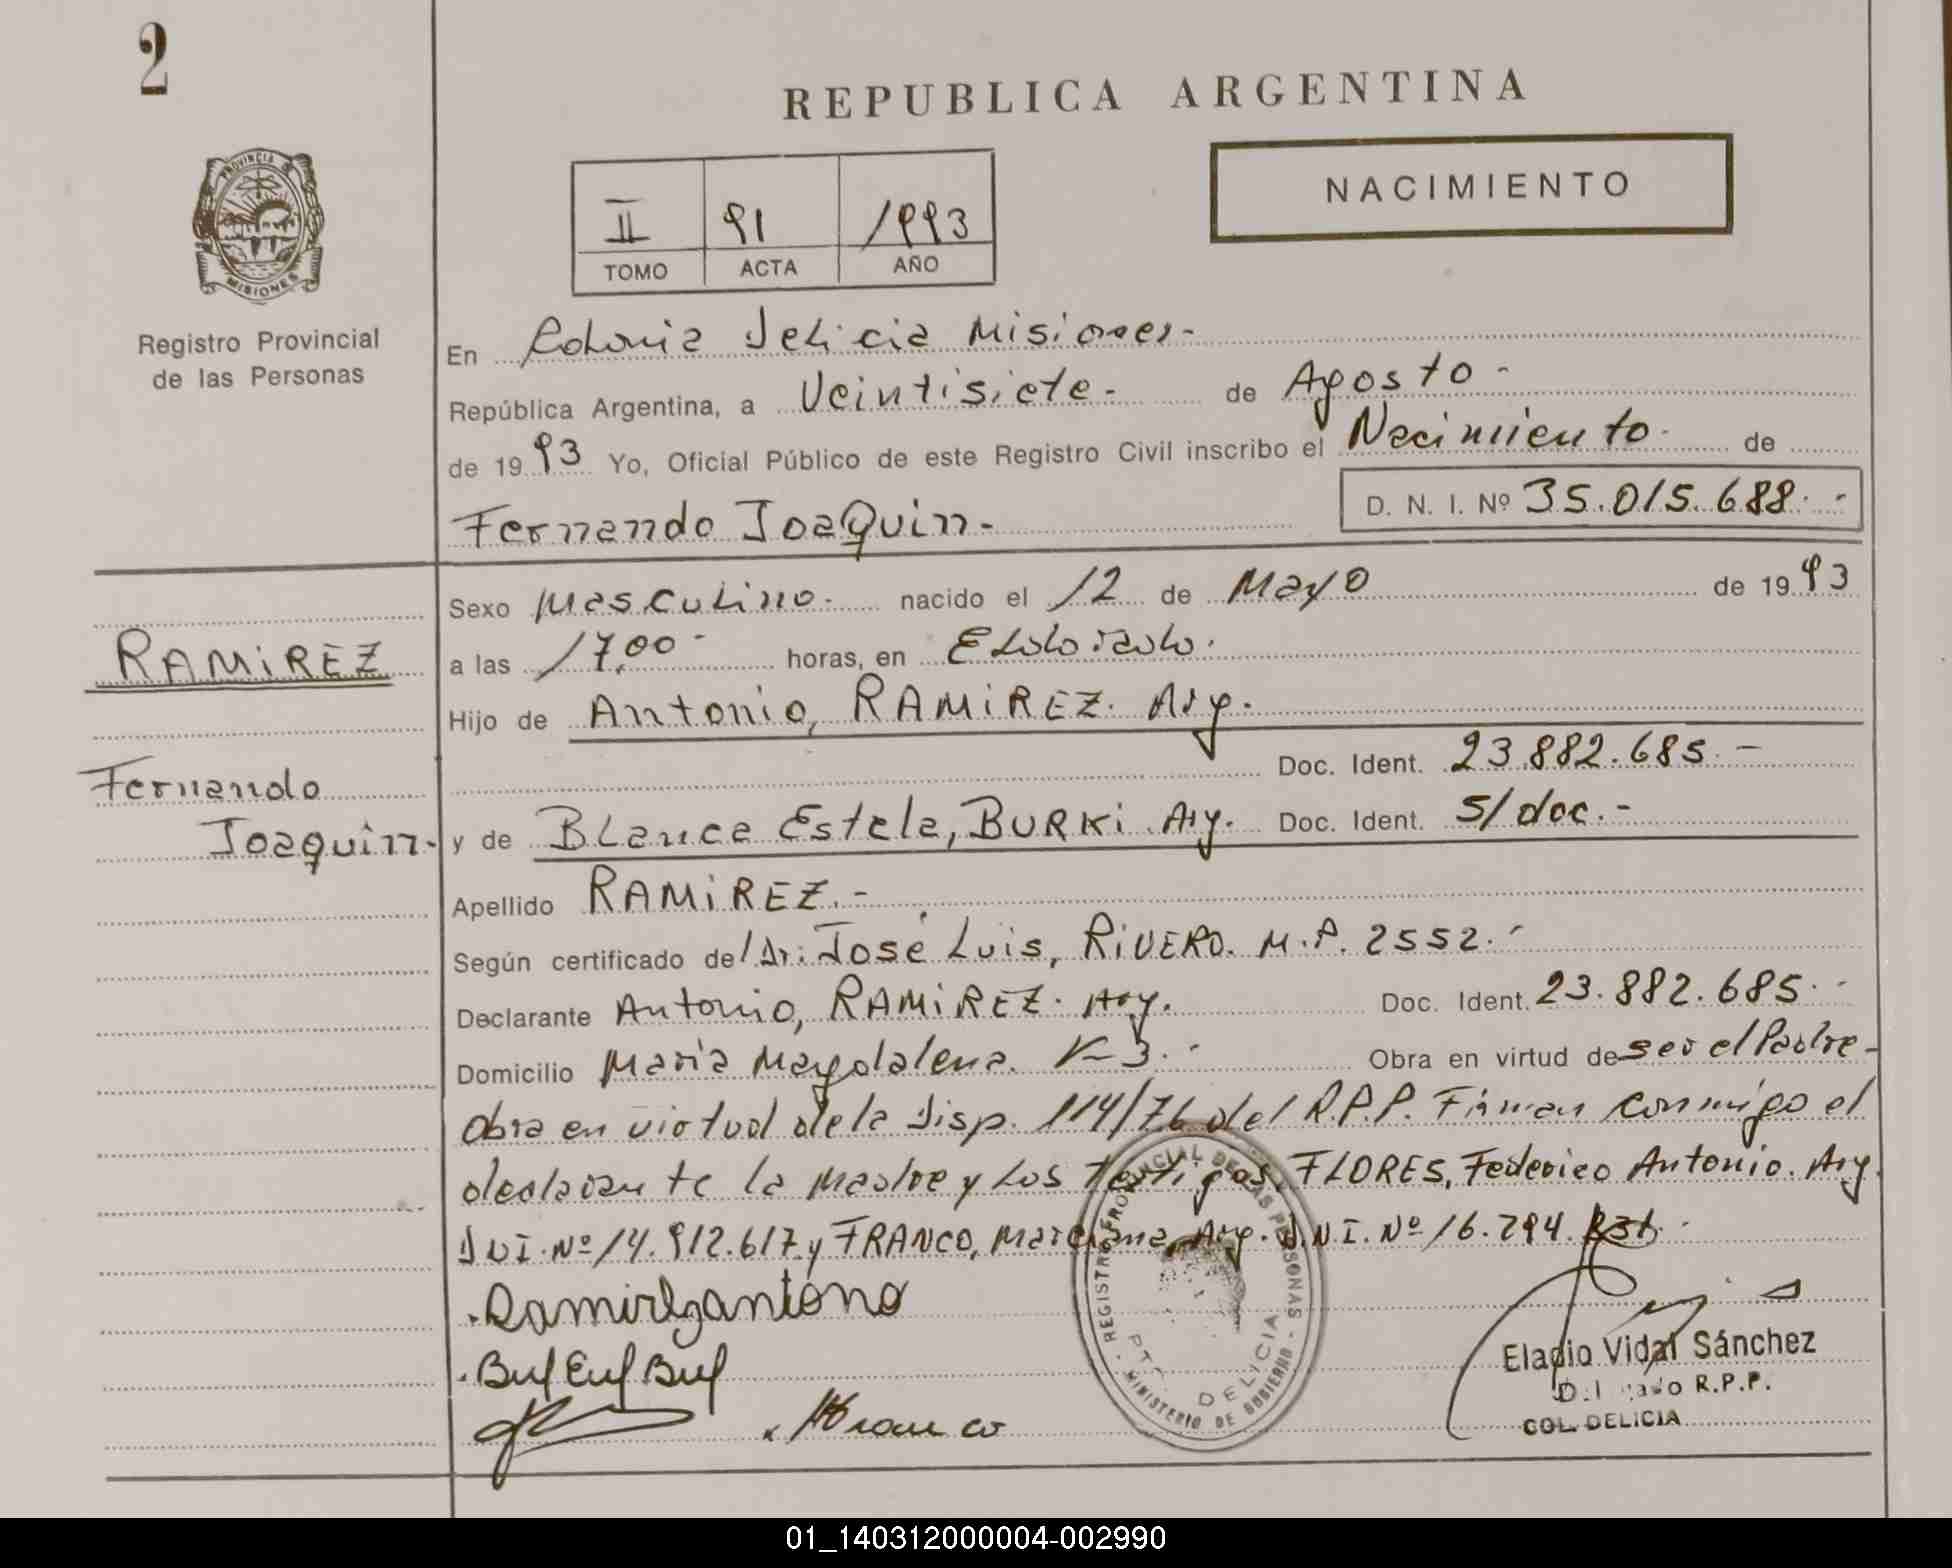 2
REPUBLICA ARGENTINA
NACIMIENTO
II 91 1993
TOMO ACTA AÑO
PROVINCIA DE MISIONES
Registro Provincial
de las Personas
En Colonia Delicia Misiones-
República Argentina, a Veintisiete- de Agosto-
de 19 93 Yo, Oficial Público de este Registro Civil inscribo el Nacimiento de
Fernando JoaQuin- D. N. I. Nº 35.015.688.-
Sexo Masculino. nacido el 12 de Mayo de 19 93
RAMIREZ
a las 17,00- horas, en Eldorado.
Hijo de Antonio, RAMIREZ. Arg.
Doc. Ident. 23.882.685.-
Fernando
Joaquin-
y de Blanca Estela, BURKI. Arg. Doc. Ident. S/doc.-
Apellido RAMIREZ.-
Según certificado del Dr: José Luis, RIVERO. M.P. 2552.-
Declarante Antonio, RAMIREZ. Arg. Doc. Ident. 23.882.685.-
Domicilio Maria Magdalena. K-3.- Obra en virtud de ser el Padre-
Obra en virtud de la Disp. 114/76 del R.P.P. Firman conmigo el
declarante la Madre y Los Testigos, FLORES, Federico Antonio. Arg.
DNI. Nº 14.912.617 y FRANCO, Marciana, Arg. D.N.I. Nº 16.794.
Ramirez antono
Franco
REGISTRO PROVINCIAL DE LAS PERSONAS
MINISTERIO DE GOBIERNO
DELICIA
Eladio Vidal Sánchez
R.P.P.
COL. DELICIA
01_140312000004-002990